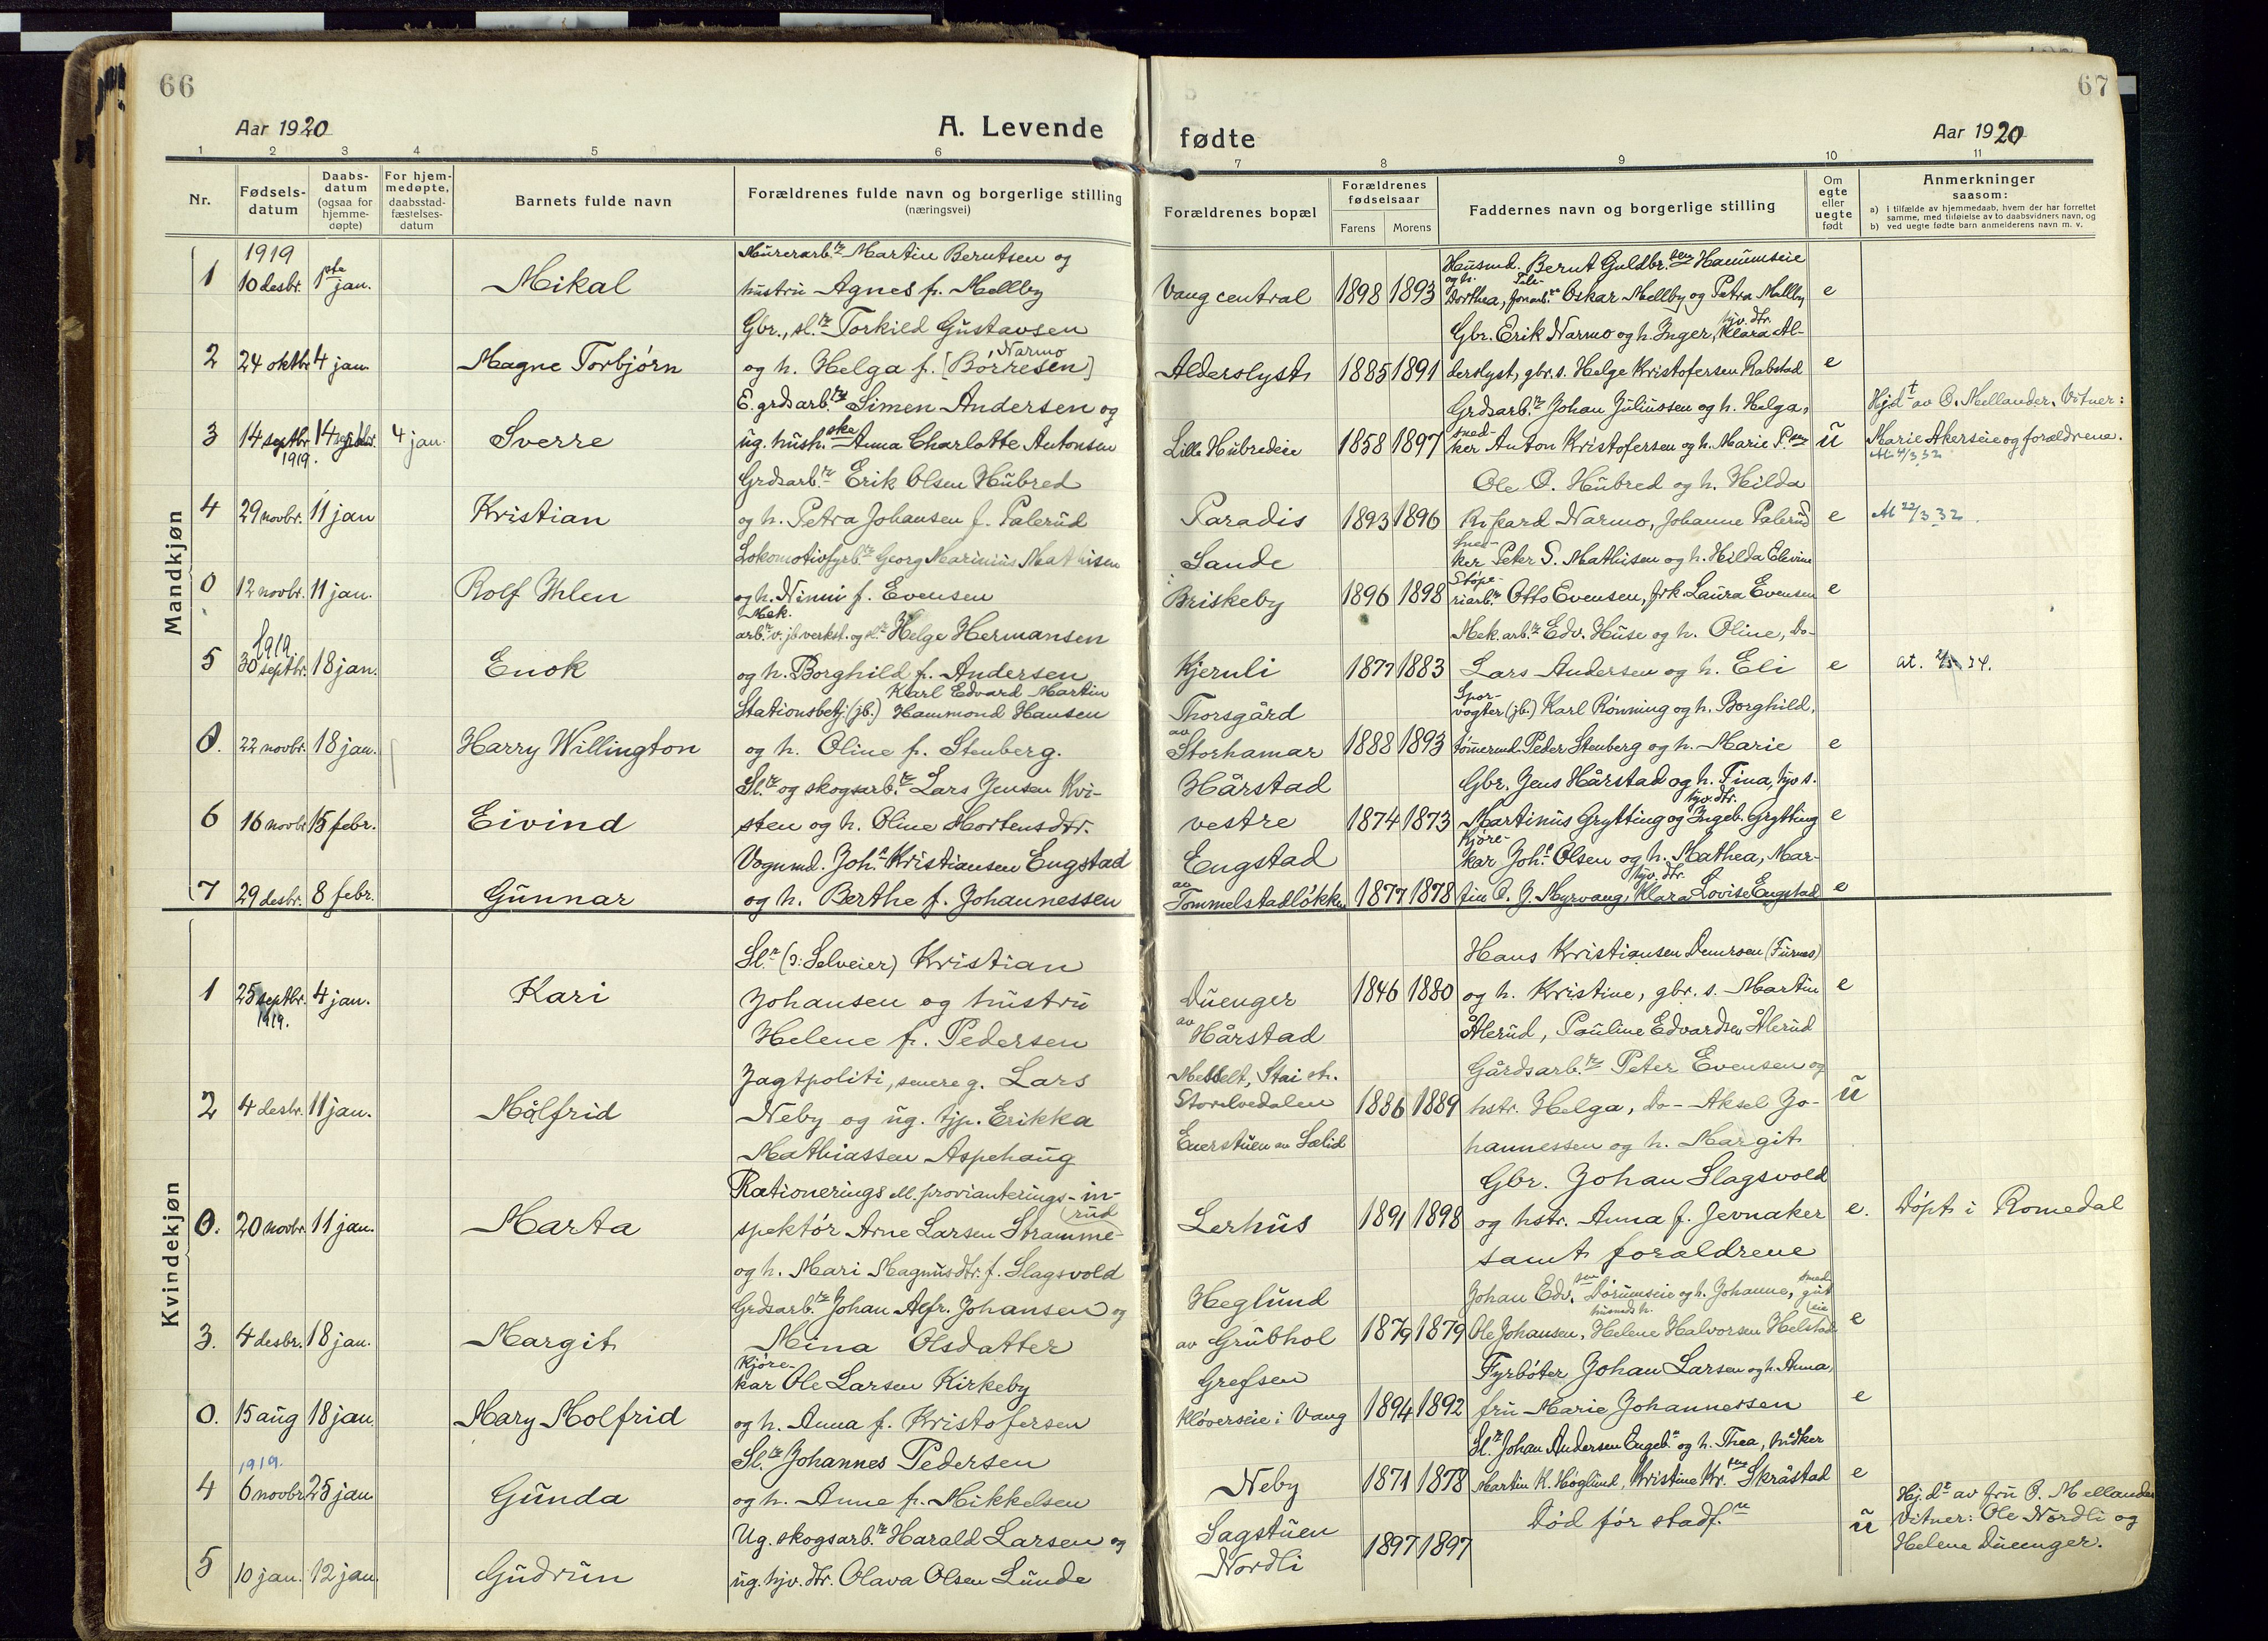 66
Aar 1920
A. Levende
1 2 3 4 5 6
Nr.
Fødsels-
datum
Daabs-
datum
(ogsaa for
hjemme-
døpte)
For hjem-
medøpte,
daabsstad-
fæstelses-
datum
Barnets fulde navn
Forældrenes fulde navn og borgerlige stilling
(næringsvei)
Mandkjøn
1919
Murerarb.r Martin Berntsen og
1 10 desbr. 1ste jan. Mikal hustru Agnes f. Mellby
Gbr., sl.r Torkild Gustavsen
Narmo
2 24 oktbr. 4 jan. Magne Torbjørn og h. Helga f. [Børresen]
E. grdsarb.r Simen Andersen og
3 14 septbr. 14 septbr. 4 jan. Sverre ug. hush.ske Anna Charlotte Antonsen
1919.
Grdsarb.r Erik Olsen Hubred
4 29 novbr. 11 jan Kristian og h. Petra Johansen f. Palerud
Lokomotivfyrb.r Georg Marinius Mathisen
0 12 novbr. 11 jan. Rolf Ihlen og h. Ninni f. Evensen
Mek.
1919.
arb.r v. jb verkst. og sl.r Helge Hermansen
5 30 septbr. 18 jan. Enok og h. Borghild f. Andersen
Karl Edvard Martin
Stationsbetj. (jb.) Hammond Hansen
0. 22 novbr. 18 jan. Harry Willington og h. Oline f. Stenberg.
Sl.r og skogsarb.r Lars Jensen Kvi-
6 16 novbr 15 febr. Eivind sten og h. Oline Mortensdtr.
Vognmd. Joh.s Kristiansen Engstad
7 29 desbr. 8 febr. Gunnar og h. Berthe f. Johannessen
Kvindekjøn
Sl.r (ɔ: Selveier) Kristian
1 25 septbr. 4 jan. Kari Johansen og hustru
1919.
Helene f. Pedersen
Jagtpoliti, senere g. Lars
2 4 desbr. 11 jan. Målfrid Neby og ug. tjp. Erikka
Mathiassen Aspehaug
Rationerings el. provianterings-in-
rud
0. 20 novbr. 11 jan. Marta spektør Arne Larsen Stramme-
og h. Mari Magnusdtr. f. Slagsvold
Grdsarb.r Johan Alfr. Johansen og
3. 4 desbr. 18 jan. Margit Mina Olsdatter
Kjøre-
kar Ole Larsen Kirkeby
0. 15 aug 18 jan. Mary Molfrid og h. Anna f. Kristofersen
1919.
Sl.r Johannes Pedersen
4 6 novbr 25 jan. Gunda og h. Anne f. Mikkelsen
Ug. skogsarb.r Harald Larsen og
5 10 jan. 12 jan. Gudrun ug. hjv. dtr. Olava Olsen Lunde
67
fødte
Aar 1920
7 8 9 10 11
Forældrenes bopæl
Forældrenes
fødselsaar
Farens Morens
Faddernes navn og borgerlige stilling
Om
egte
eller
uegte
født
Anmerkninger
saasom:
a) i tilfælde av hjemmedaab, hvem der har forrettet
samme, med tilføielse av to daabsvidners navn, og
b) ved uegte fødte barn anmelderens navn m. v.
Husmd. Bernt Guldbr.sen Hanumseie
og h.
Vang central 1898 1893 Dorthea, Oskar Mellby og Petra Mellby e
hjv. dtr.
Gbr. Erik Narmo og h. Inger, Klara Al-
Alderslyst 1885 1891 derslyst, gbr. s. Helge Kristofersen Rabstad e
Grdsarb.r Johan Juliussen og h. Helga,
Hjdt av O. Mellander. Vitner:
sned-
Lille Hubredeie 1858 1897 ker Anton Kristofersen og h. Marie P.sen ŭ Marie Akerseie og forældrene.
At. 4/3 32
Ole O. Hubred og h. Hilda
Paradis 1893 1896 Rikard Narmo, Johanne Palerud e At 22/3 32.
Sande
sned-
ker Peter S. Mathisen og h. Hilda Elevine
i
Støpe-
Briskeby 1896 1898 riarb.r Otto Evensen, frk. Laura Evensen e
Mek. arb.r Edv. Huse og h. Oline, Do-
Kjernli 1877 1883 Lars Andersen og h. Eli e
Thorsgård
Spor-
vogter (jb.) Karl Rønning og h. Borghild,
av
Storhamar 1888 1893 tømermd. Peder Stenberg og h. Marie e
Hårstad
Gbr. Jens Hårstad og h. Tina, hjv s.
hjv. dtr.
vestre 1874 1873 Martinus Grytting og Ingeb. Grytting e
Engstad
Kjøre-
kar Joh.s Olsen og h. Mathea, Mar-
av
hjv. dtr.
Tommelstadløkken 1877 1878 tin O. J. Myrvang, Klara Lovise Engstad e
Hans Kristiansen Demroen (Furnes)
Duenger 1846 1880 og h. Kristine, gbr. s. Martin e
av
Hårstad
Ålerud, Pauline Edvardsen Ålerud
Messelt, Stai st.
Gårdsarb.r Peter Evensen og
Storelvedalen 1886 1889 hstr. Helga, Do- Aksel Jo- ŭ
Enerstuen av Sælid
hannessen og h. Margit
Gbr. Johan Slagsvold
Lerhus 1891 1898 og hstr. Anna f. Jevnaker e. Døpt i Romedal
samt foraldrene
Heglund
Johan Edv.sen Dørumseie og h. Johanne, smed-
gut
husmds h.
av Grubhol 1879 1879 Ole Johansen, Helene Halvorsen Helstad e
eie
Grefsen
Fyrbøter Johan Larsen og h. Anna,
Kløverseie i Vang 1894 1892 fru Marie Johannessen e
Sl.r Johan Andersen Engeb. og h. Thea, snidker
Neby 1871 1878 Martin K. Høglund, Kristine Kr.sen Skråstad e
Sagstuen
Nordli 1897 1897
Død før stadf.n ŭ
Hj.dt av fru O. Mellander
Vitner: Ole Nordli og
Helene Duenger.